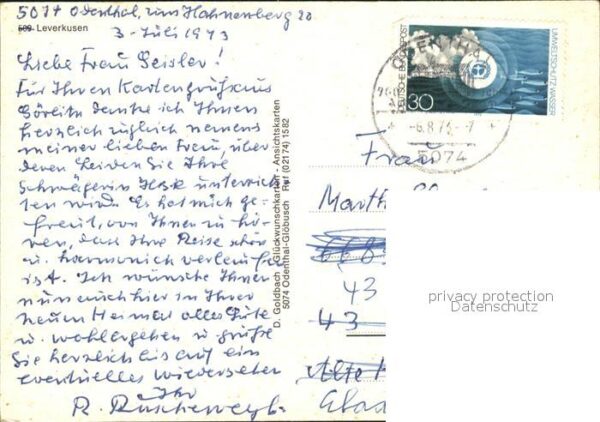 5074 Odenthal, zum Hahnenberg 20
509 Leverkusen
3. Juli 1973
Liebe Frau Geisler!
Für Ihren Kartengruß aus
Görlitz danke ich Ihnen
herzlich zugleich namens
meiner lieben Frau, über
deren Leiden Sie Ihre
Schwägerin unterrich-
ten wird. Es hat mich ge-
freut, von Ihnen zu hö-
ren, dass Ihre Reise schön
u. harmonisch verlaufen
ist. Ich wünsche Ihnen
nun auch hier in Ihrer
neuen Heimat alles Gute
u. Wohlergehen u. grüße
Sie herzlich bis auf ein
eventuelles Wiedersehen
Ihr
D. Goldbach - Glückwunschkarten - Ansichtskarten
5074 Odenthal-Glöbusch - Ruf (02174) 1582
DEUTSCHE BUNDESPOST
30
UMWELTSCHUTZ: WASSER
ODENTHAL
-6.8.73.-7
5074
Frau
Marth
668
43
43
Alte
privacy protection
Datenschutz